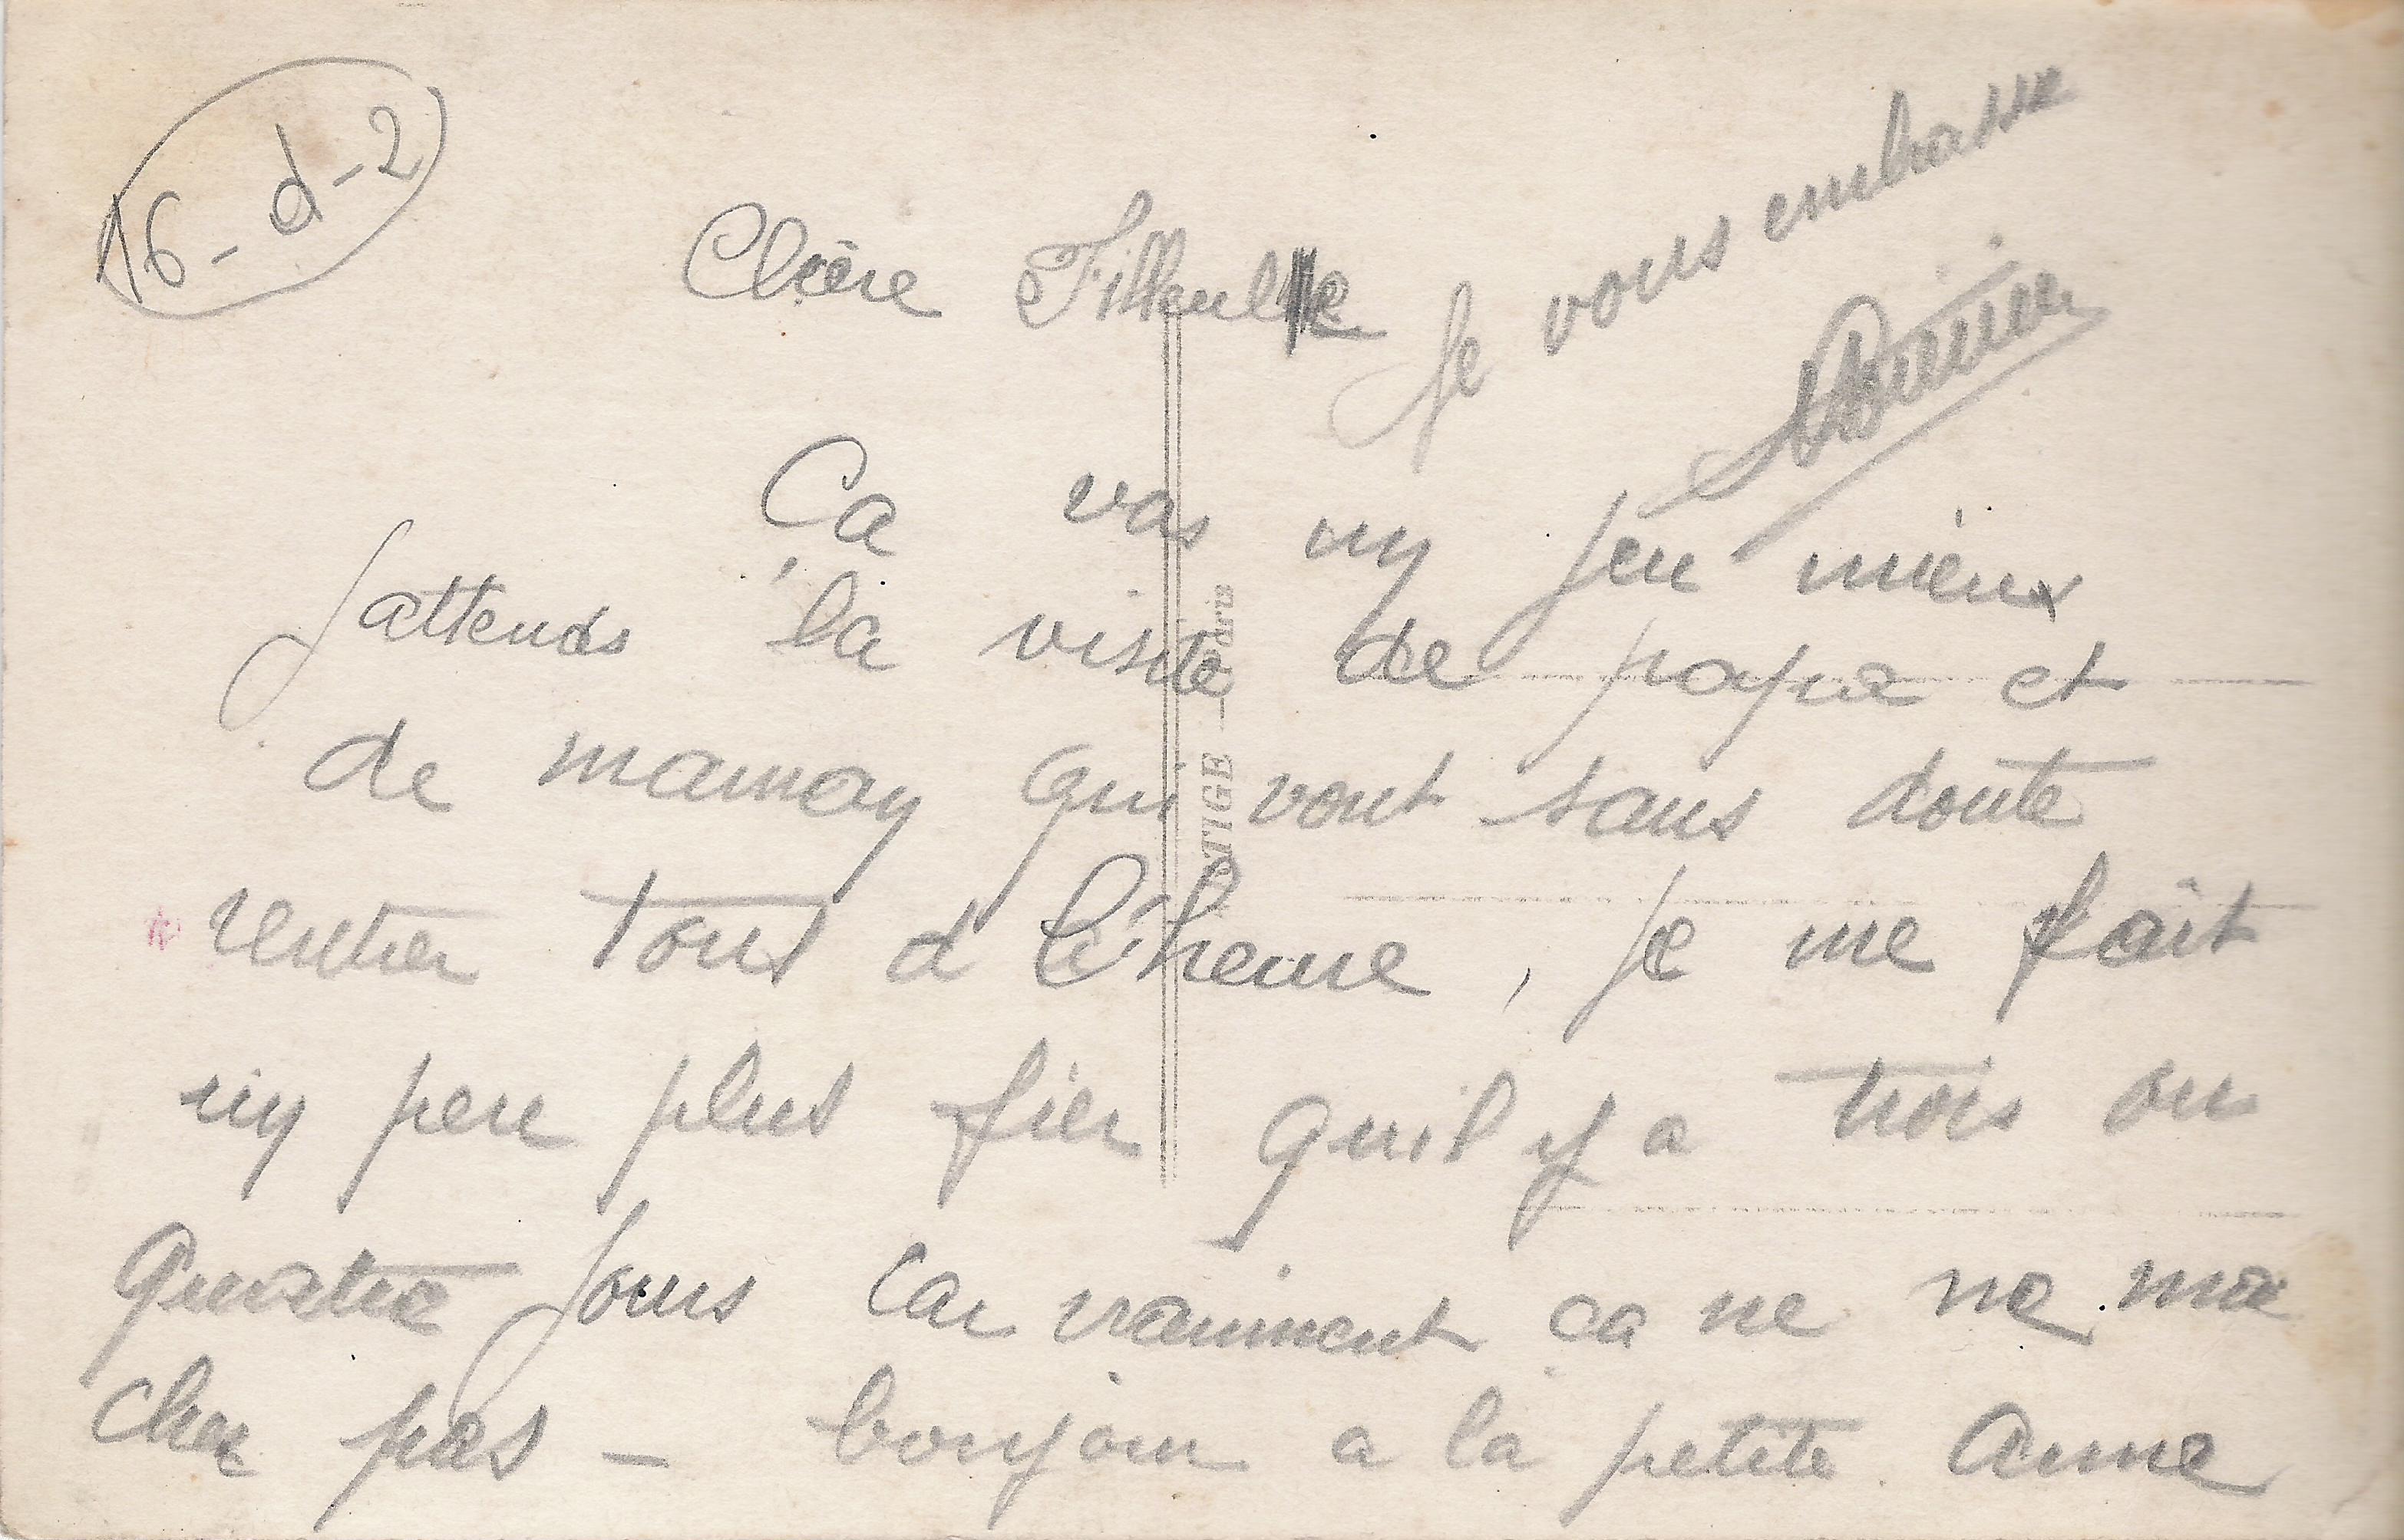 16-d-2
Chère Filleule
Ca vas un peu mieux
J'attends la visite de papa et
de maman qui vont sans doute
rentrer tout d l'heure, Je me fait
un peu plus fier qu'il y a trois ou
Quatre Jours Car vraiment ca ne ne mar
cher pas — bonjour a la petite Anne
Je vous embrasse
TIGE — Paris